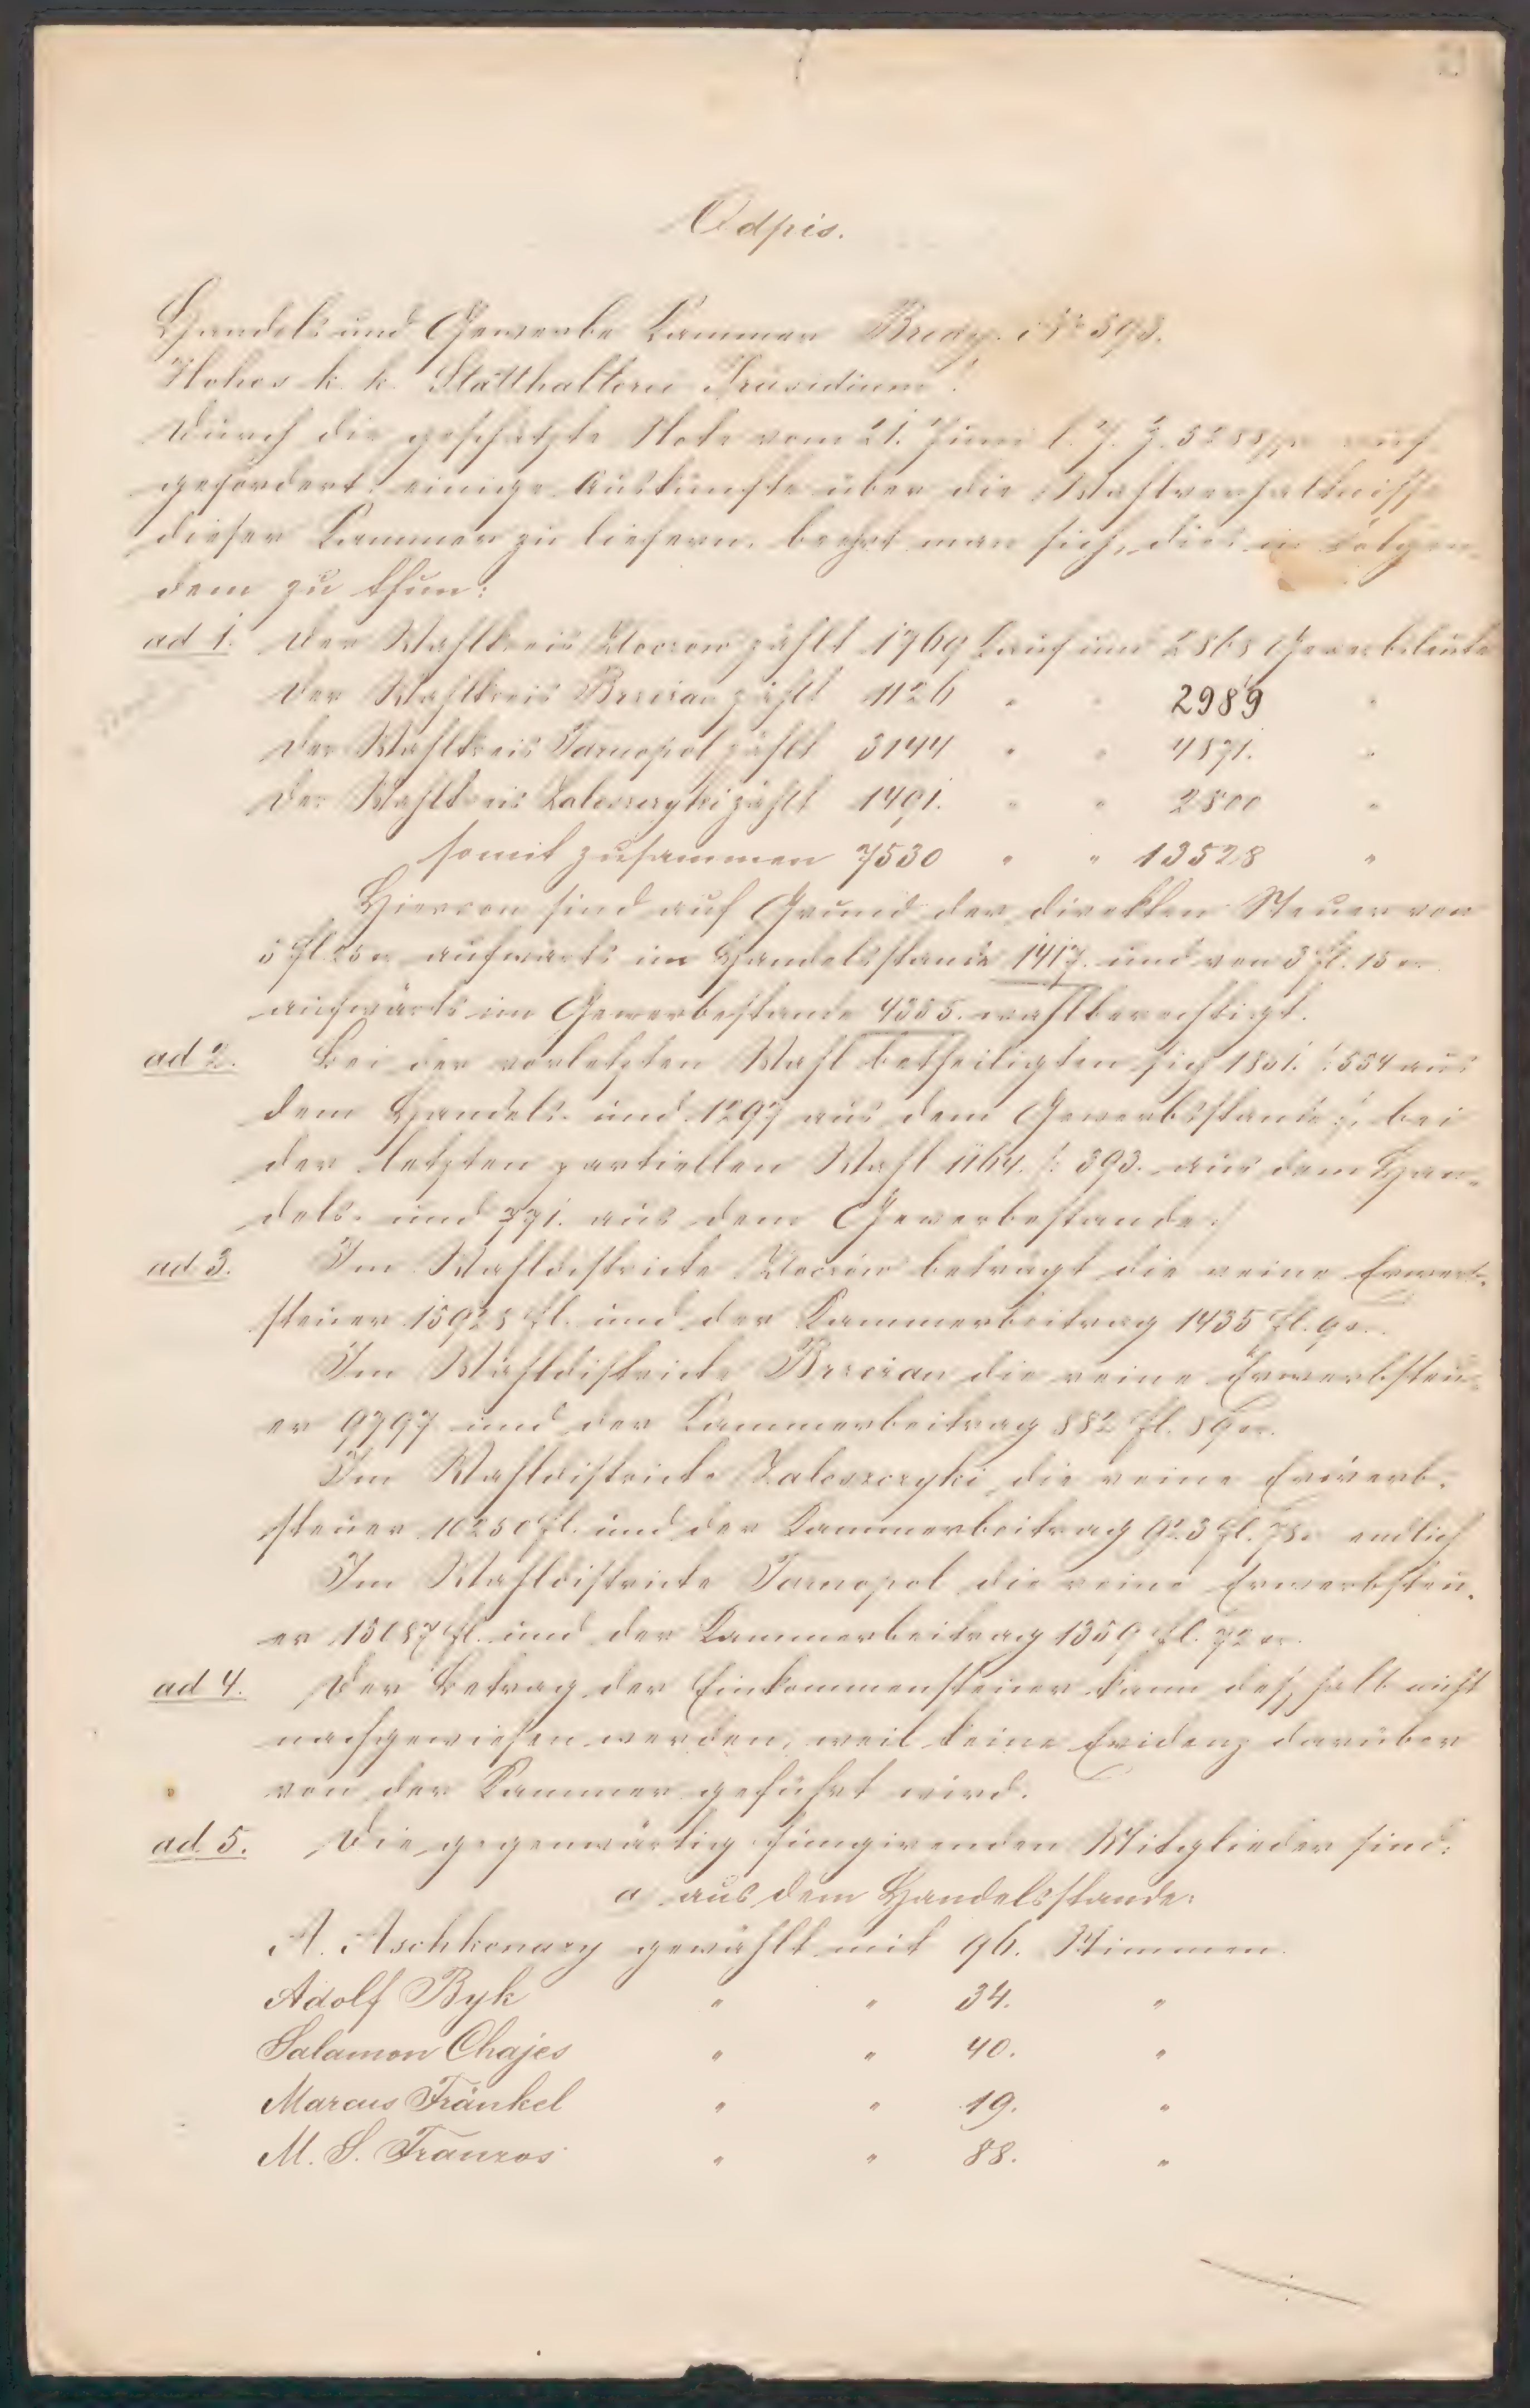 Odpis.
Handels und Gewerbe Kammer Brody. Nr 593.
Hohes k. k. Statthalterei Präsidium!
Durch die geschätzte Note vom 21. Juni l. J. Z. 5288/pr auf-
gefordert, einige Auskünfte über die Wahlverhältnisse
dieser Kammer zu liefern, beehrt man sich, dies in Folgen-
dem zu thun:
ad 1. Der Wahlkreis Złoczow zählt 1769 Kauf und 2868 Gewerbsleute
Der Wahlkreis Brzezan zählt 1126 " " 2989 "
Der Wahlkreis Tarnopol zählt 3144 " " 4871. "
Der Wahlkreis Zaleszczyki zählt 1491. " " 2800 "
somit zusammen 7530 " " 13528 "
Hievon sind auf Grund der direkten Steuer von
5 fl. 25 xr aufwärts im Handelsstande 1417. und von 3 fl. 15 xr.
aufwärts im Gewerbestande 4385. wahlberechtigt.
ad 2. Bei der vorletzten Wahl betheiligten sich 1851. /:554 aus
dem Handels- und 1297 aus dem Gewerbsstande:/, bei
der letzten partiellen Wahl 1164. /: 393. aus dem Han-
dels- und 771. aus dem Gewerbestande:/
ad 3. Im Wahldistricte Złoczów beträgt die reine Erwerb-
steuer 15928 fl. und der Kammerbeitrag 1435 fl. 9 xr.
Im Wahldistricte Brzezan die reine Erwerbsteu-
er 9797 und der Kammerbeitrag 882 fl. 89 xr.
Im Wahldistricte Zaleszczyki die reine Erwerb-
steuer 10250 fl. und der Kammerbeitrag 923 fl. 78 xr endlich
Im Wahldistricte Tarnopol die reine Erwerbsteu-
er 15087 fl. und der Kammerbeitrag 1359 fl. 72 xr.
ad 4. Der Betrag der Einkommensteuer kann deßhalb nicht
nachgewiesen werden, weil keine Evidenz darüber
von der Kammer geführt wird.
ad 5. Die gegenwärtig fungirenden Mitglieder sind:
a) aus dem Handelsstande:
A. Aschkenazy gewählt mit 96. Stimmen
Adolf Byk " " 34. "
Salamon Chajes " " 40. "
Marcus Fränkel " " 19. "
M. S. Franzos " " 88. "